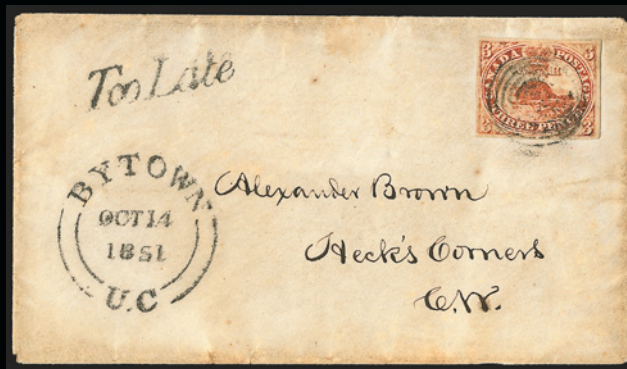 Too Late
3 3
CANADA POSTAGE
THREE PENCE
3 3
BYTOWN
OCT 14
1851
U.C
Alexander Brown
Heck's Corners
C.W.